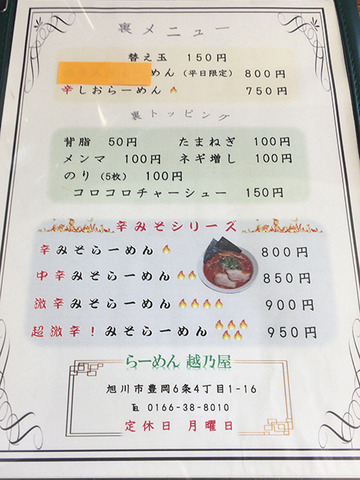 裏メニュー
替え玉 150円
めん (平日限定) 800円
辛しおらーめん 750円
裏トッピング
背脂 50円 たまねぎ 100円
メンマ 100円 ネギ増し 100円
のり (5枚) 100円
コロコロチャーシュー 150円
辛みそシリーズ
辛みそらーめん 800円
中辛みそらーめん 850円
激辛みそらーめん 900円
超激辛！みそらーめん 950円
らーめん 越乃屋
旭川市豊岡6条4丁目1-16
℡ 0166-38-8010
定休日 月曜日